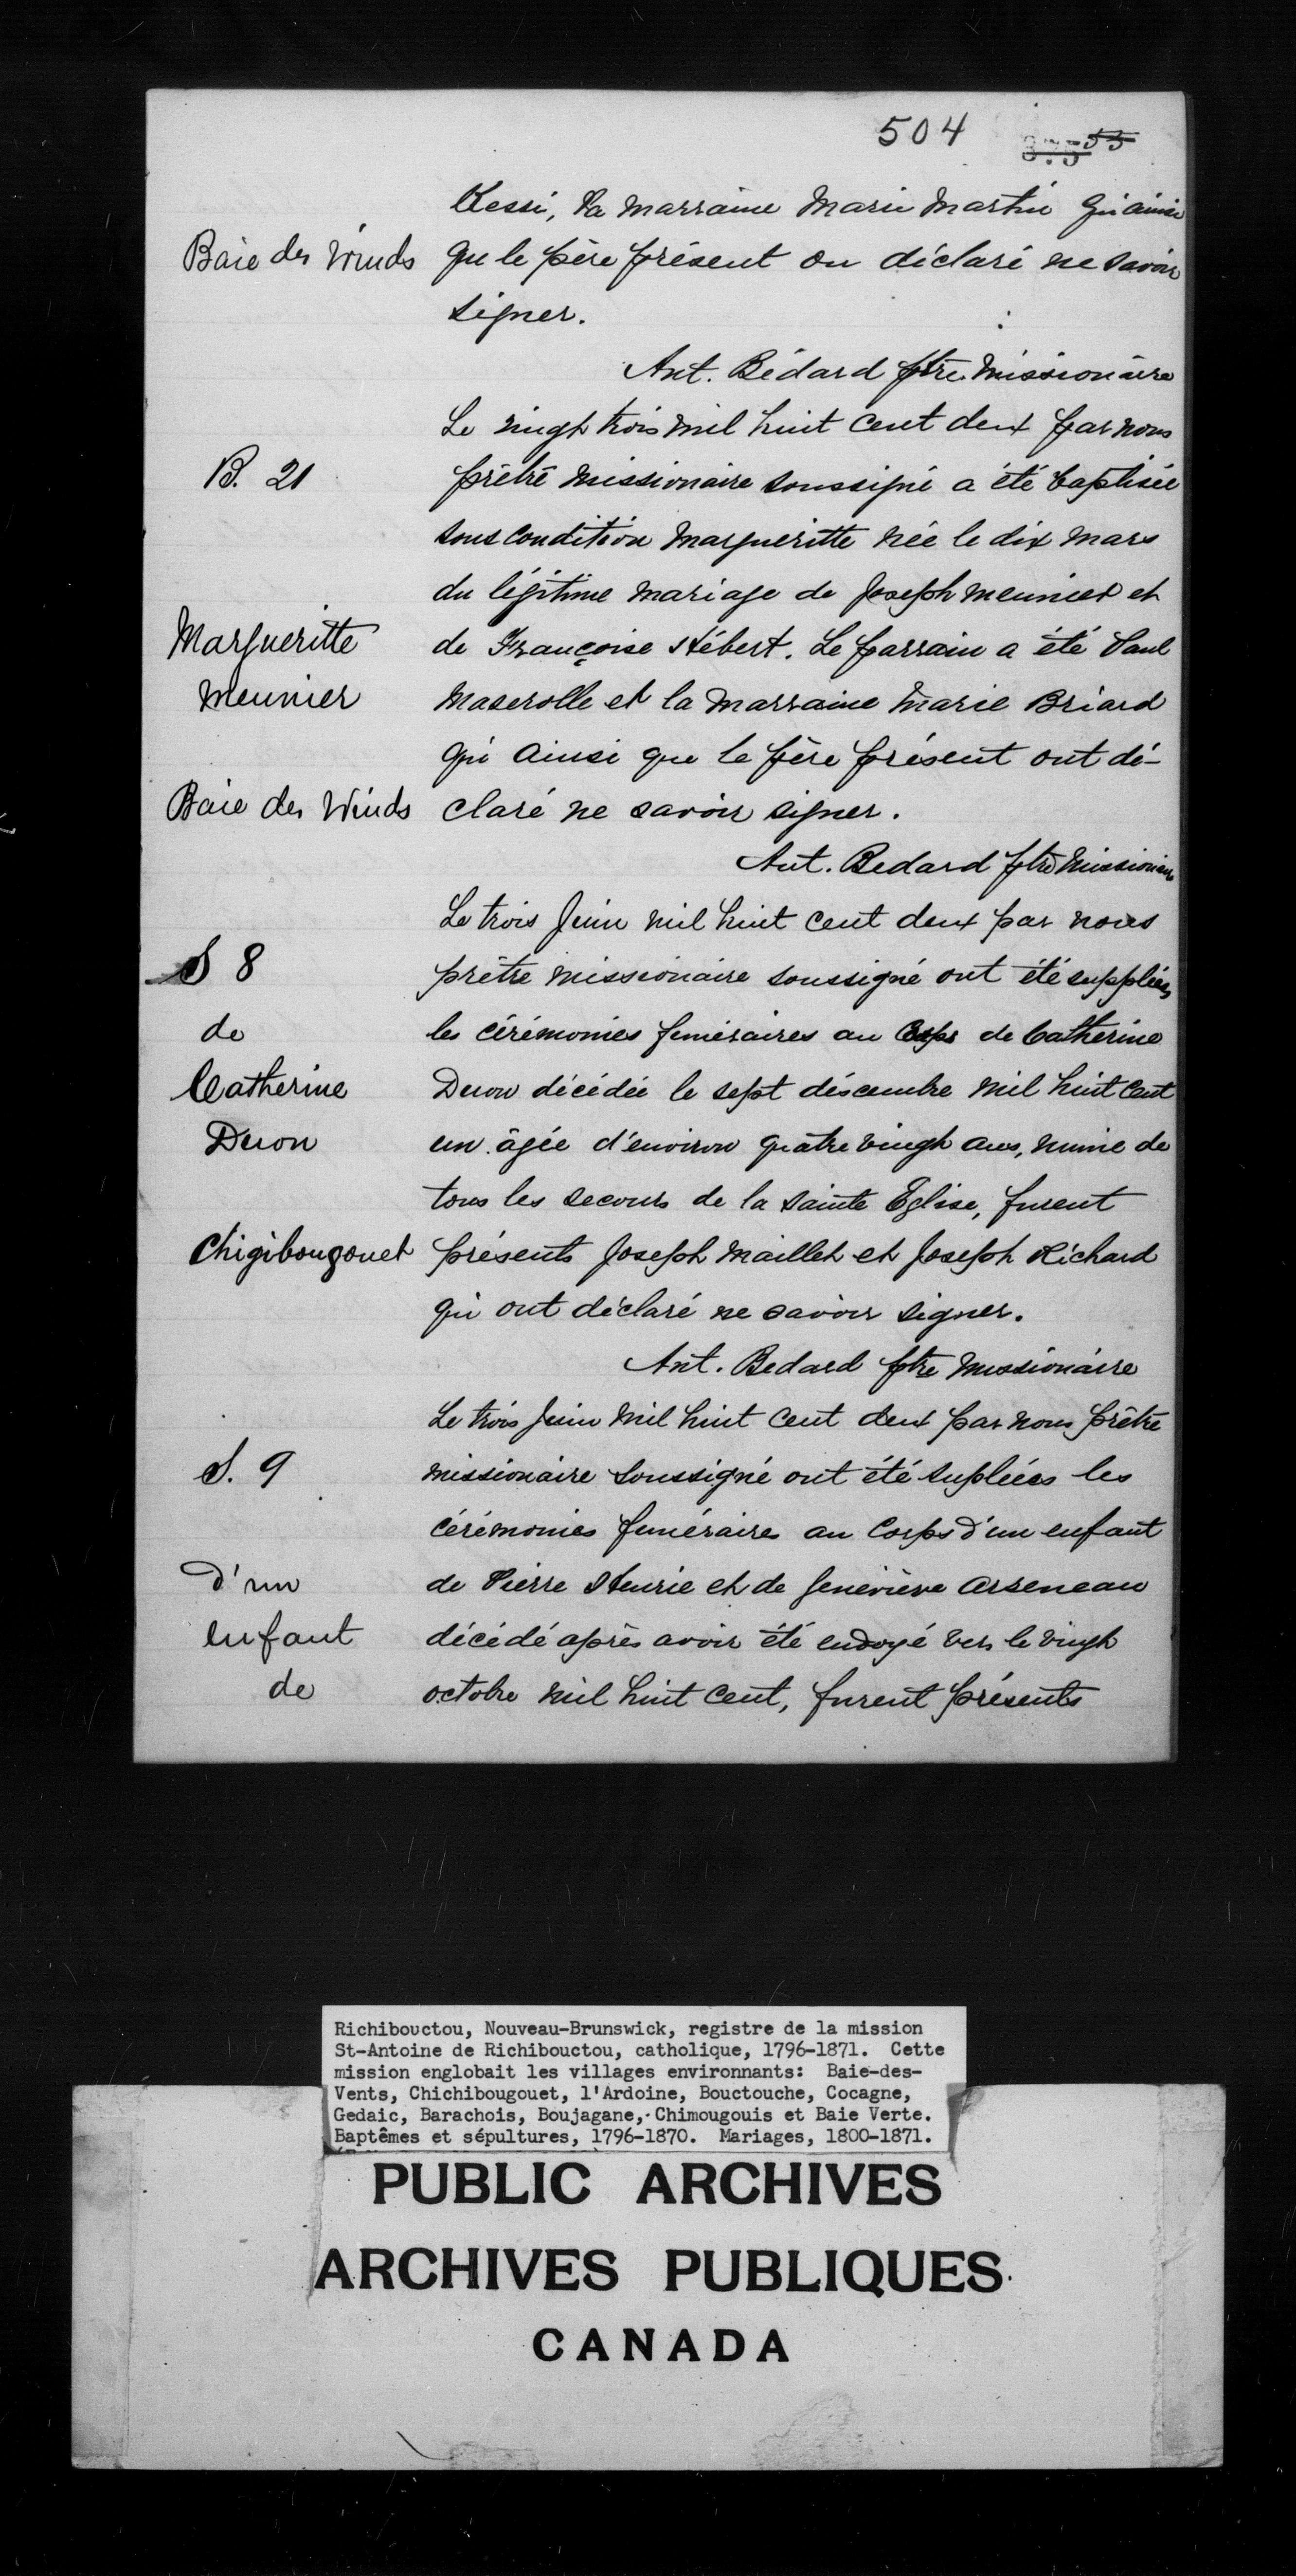 504 375 55
Kessi, la marraine Marie Martin qui ainsi
Baie des Winds que le père présent on déclaré ne savoir
signer.
Ant. Bédard ptre Missionaire
Le vingh trois mil huit cent deux par nous
B. 21 prêtre missionaire soussigné a été baptisée
sous condition Margueritte née le dix mars
du légitime mariage de Joseph Meunier et
Margueritte de Françoise Hébert. Le parrain a été Paul
Meunier Maserolle et la marraine Marie Briard
qui ainsi que le père présent ont dé-
Baie des Winds claré ne savoir signer.
Ant. Bedard ptre Missionaire
Le trois Juin mil huit cent deux par nous
S 8 prêtre missionaire soussigné ont été suppléées
de les cérémonies funéraires au Corps de Catherine
Catherine Duon décédée le sept déscembre mil huit cent
Duon un âgée d'environ quatre vingh ans, munie de
tous les secours de la Sainte Eglise, furent
Chigibougouet présents Joseph Maillet et Joseph Richard
qui ont déclaré ne savoir signer.
Ant. Bedard ptre Missionaire
Le trois Juin mil huit cent deux par nous prêtre
S. 9 missionaire soussigné ont été supléées les
cérémonies funéraires au Corps d'un enfant
d'un de Pierre Henrie et de Geneviève Arseneau
enfant décédé après avoir été endoyé vers le vingh
de octobre mil huit cent, furent présents
Richibouctou, Nouveau-Brunswick, registre de la mission
St-Antoine de Richibouctou, catholique, 1796-1871. Cette
mission englobait les villages environnants: Baie-des-
Vents, Chichibougouet, l'Ardoine, Bouctouche, Cocagne,
Gedaic, Barachois, Boujagane, Chimougouis et Baie Verte.
Baptêmes et sépultures, 1796-1870. Mariages, 1800-1871.
PUBLIC ARCHIVES
ARCHIVES PUBLIQUES
CANADA